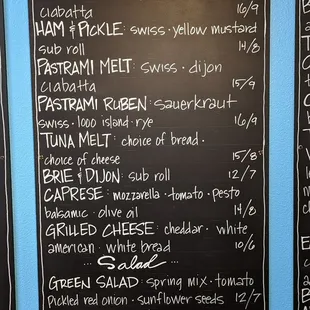 ciabatta 16/9
HAM & PICKLE: swiss · yellow mustard
sub roll 14/8
PASTRAMI MELT: swiss · dijon
ciabatta 15/9
PASTRAMI RUBEN: sauerkraut
swiss · 1000 island · rye 16/9
TUNA MELT: choice of bread ·
choice of cheese 15/8
BRIE & DIJON: sub roll 12/7
CAPRESE: mozzarella · tomato · pesto
balsamic · olive oil 14/8
GRILLED CHEESE: cheddar · white
american · white bread 10/6
... Salad ...
GREEN SALAD: spring mix · tomato
Pickled red onion · sunflower seeds 12/7